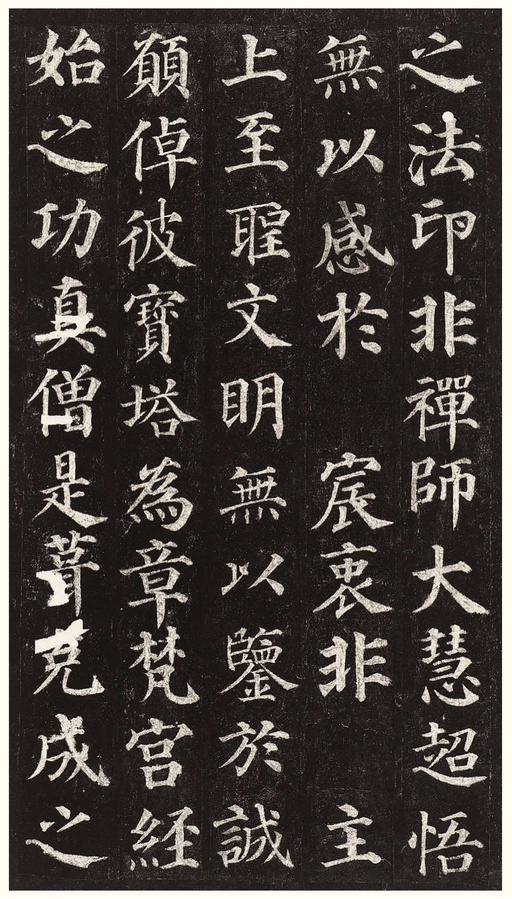 之法印非禪師大慧超悟
無以感於宸衷非主
上至聖文明無以鑒於誠
願倬彼寶塔為章梵宮經
始之功真僧是葺克成之